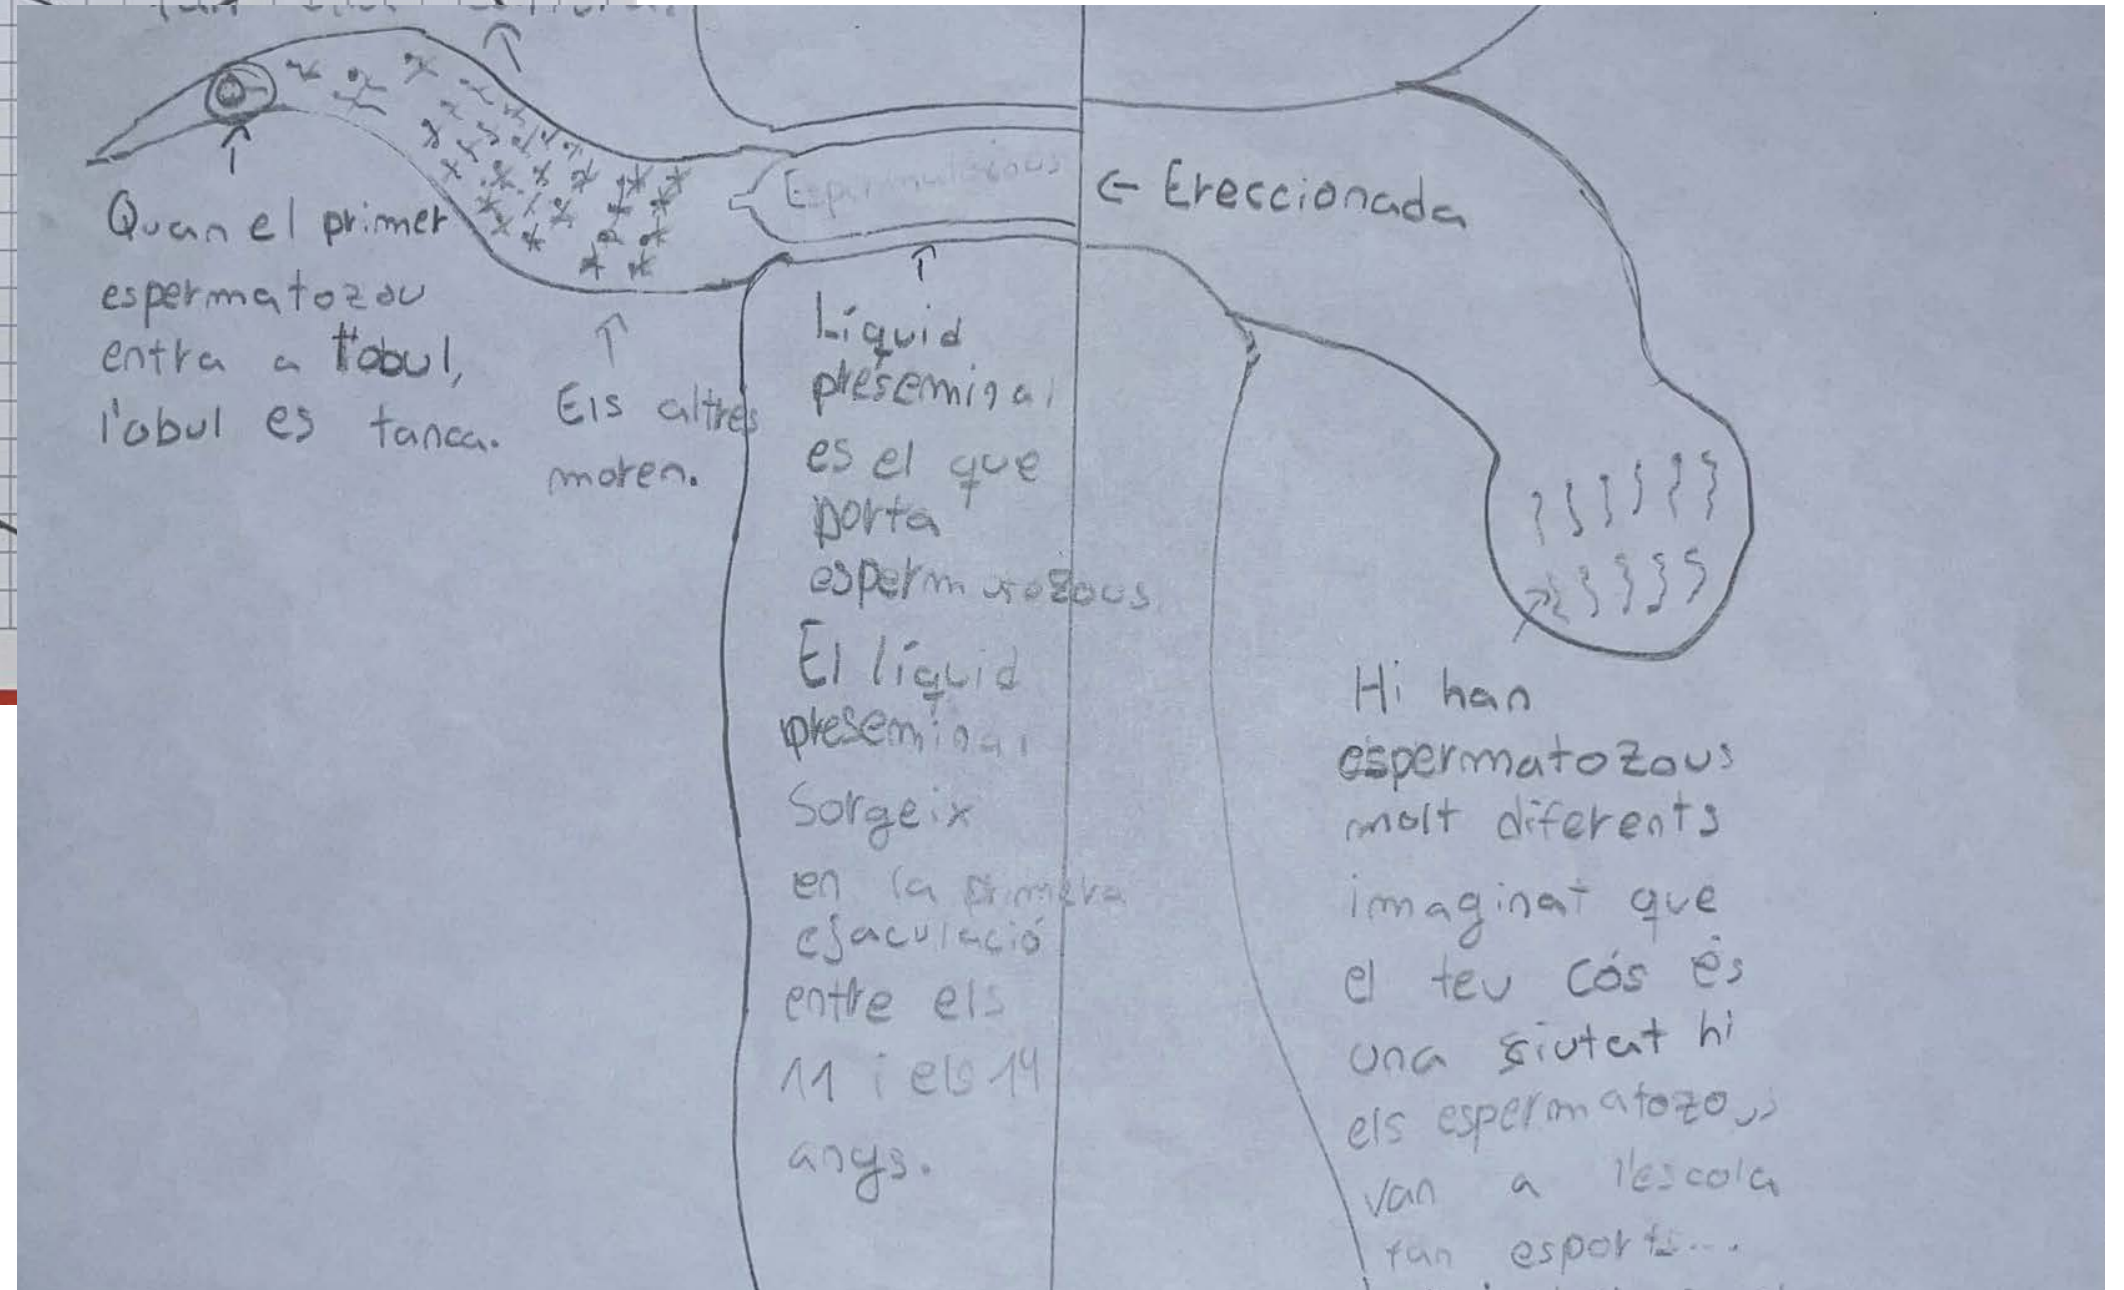 Espermatozous
← Ereccionada
Quan el primer
espermatozou
entra a l'obul,
l'obul es tanca.
Els altres
moren.
Líquid
preseminal
es el que
porta
espermatozous
El líquid
preseminal
Sorgeix
en la primera
ejaculació
entre els
11 i els 14
anys.
Hi han
espermatozous
molt diferents
imaginat que
el teu cós és
una siutat hi
els espermatozous
van a l'escola
fan esports...